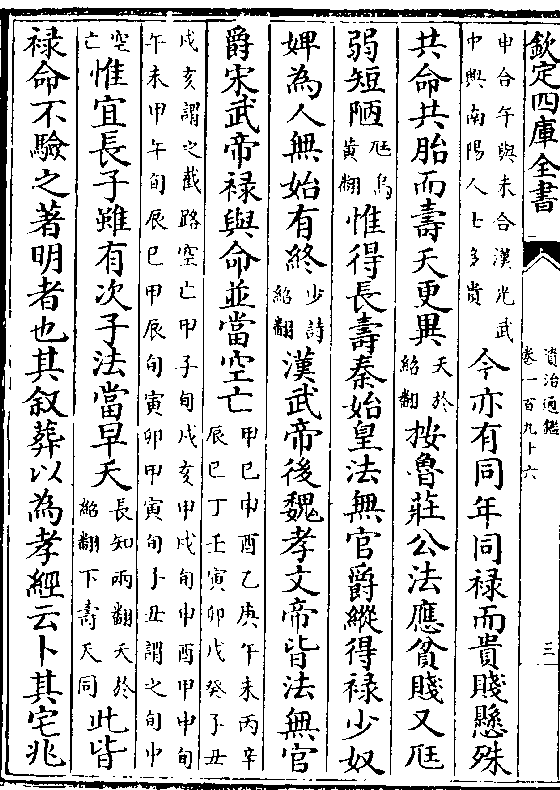 欽定四庫全書
資治通鑑
卷一百九十六
三
申合午與未合漢光武中興南陽人士多貴今亦有同年同禄而貴賤懸殊
共命共胎而壽夭更異夭於紹翻按魯莊公法應貧賤又尫
弱短陋尫烏黃翻惟得長壽秦始皇法無官爵縱得禄少奴
婢為人無始有終少詩紹翻漢武帝後魏孝文帝皆法無官
爵宋武帝禄與命並當空亡甲巳申酉乙庚午未丙辛辰巳丁壬寅卯戊癸子丑
戌亥謂之截路空亡甲子旬戌亥甲戌旬申酉甲申旬午未甲午旬辰巳甲辰旬寅卯甲寅旬子丑謂之旬中
空亡惟宜長子雖有次子法當早夭長知兩翻夭於紹翻下壽夭同此皆
禄命不驗之著明者也其叙葬以為孝經云卜其宅兆